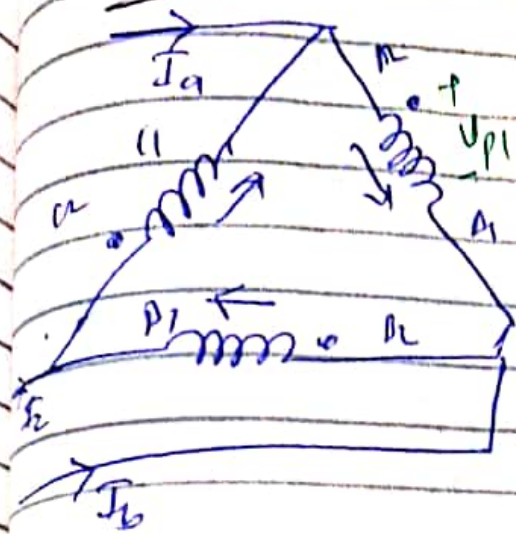 Ia
A2
+
Vp1
-
C1
C2
A1
B1
B2
Ib